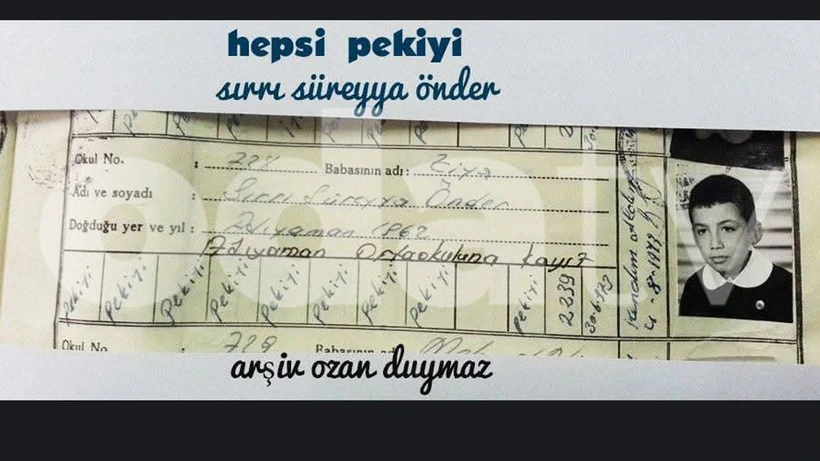 hepsi pekiyi
sırrı süreyya önder
Okul No. : 728 Babasının adı: Ziya
Adı ve soyadı : Sırrı Süreyya Önder
Doğduğu yer ve yıl : Adıyaman 1962
Adıyaman Ortaokuluna kayıt
Pekiyi Pekiyi Pekiyi Pekiyi Pekiyi Pekiyi Pekiyi Pekiyi Pekiyi 2239
Kendim aldım
odatv
Okul No 729 Babasının adı:
arşiv ozan duymaz